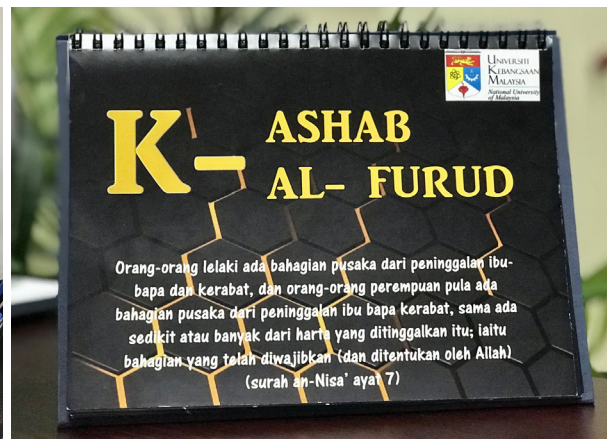 UNIVERSITI
KEBANGSAAN
MALAYSIA
National University
of Malaysia
K- ASHAB
AL- FURUD
Orang-orang lelaki ada bahagian pusaka dari peninggalan ibu-
bapa dan kerabat, dan orang-orang perempuan pula ada
bahagian pusaka dari peninggalan ibu bapa kerabat, sama ada
sedikit atau banyak dari harta yang ditinggalkan itu; iaitu
bahagian yang telah diwajibkan (dan ditentukan oleh Allah)
(surah an-Nisa' ayat 7)